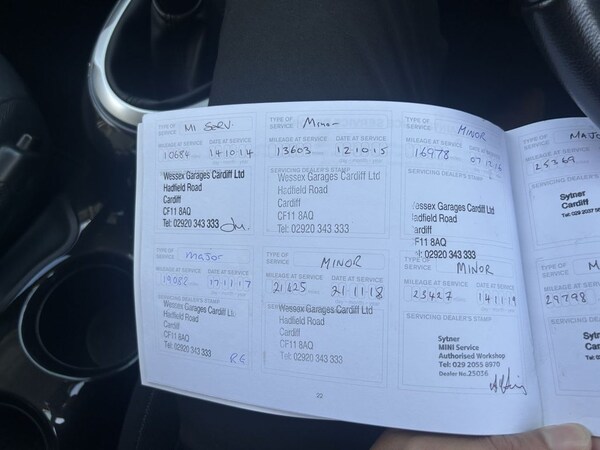 TYPE OF SERVICE Mi SERV.
MILEAGE AT SERVICE DATE AT SERVICE
10684 14 10 14
Wessex Garages Cardiff Ltd
Hadfield Road
Cardiff
CF11 8AQ
Tel: 02920 343 333
TYPE OF SERVICE Minor
MILEAGE AT SERVICE DATE AT SERVICE
13603 12 10 15
SERVICING DEALER'S STAMP
Wessex Garages Cardiff Ltd
Hadfield Road
Cardiff
CF11 8AQ
Tel: 02920 343 333
TYPE OF SERVICE MINOR
MILEAGE AT SERVICE DATE AT SERVICE
16978 07 12 16
SERVICING DEALER'S STAMP
essex Garages Cardiff Ltd
adfield Road
ardiff
F11 8AQ
02920 343 333
TYPE OF SERVICE major
MILEAGE AT SERVICE DATE AT SERVICE
19088 17 11 17
SERVICING DEALER'S STAMP
Wessex Garages Cardiff Lt
Hadfield Road
Cardiff
CF11 8AQ
Tel: 02920 343 333
RE
TYPE OF SERVICE MINOR
MILEAGE AT SERVICE DATE AT SERVICE
21625 21 11 18
Wessex Garages Cardiff Ltd
Hadfield Road
Cardiff
CF11 8AQ
Tel: 02920 343 333
TYPE OF SERVICE MINOR
MILEAGE AT SERVICE DATE AT SERVICE
23427 14 11 19
SERVICING DEALER'S STAMP
Sytner
MINI Service
Authorised Workshop
Tel: 029 2055 8970
Dealer No.25016
22
TYPE OF SERVICE MAJO
MILEAGE AT SERVICE
25369
SERVICING DEALER'S
Sytner
Cardiff
Tel: 029 2055
TYPE OF SERVICE M
MILEAGE AT SERVICE
29798
SERVICING DEALER'S
Sytner
Car